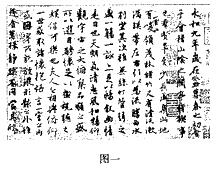 永和九年歲在癸丑暮春之初會
于會稽山陰之蘭亭脩禊事
也群賢畢至少長咸集此地
有崇山峻領茂林脩竹又有清流激
湍暎帶左右引以為流觴曲水
列坐其次雖無絲竹管弦之
盛一觴一詠亦足以暢敘幽情
是日也天朗氣清惠風和暢仰
觀宇宙之大俯察品類之盛
所以遊目騁懷足以極視聽之
娛信可樂也夫人之相與俯仰
一世或取諸懷抱悟言一室之內
或因寄所託放浪形骸之外雖
趣舍萬殊靜躁不同當其欣
图一